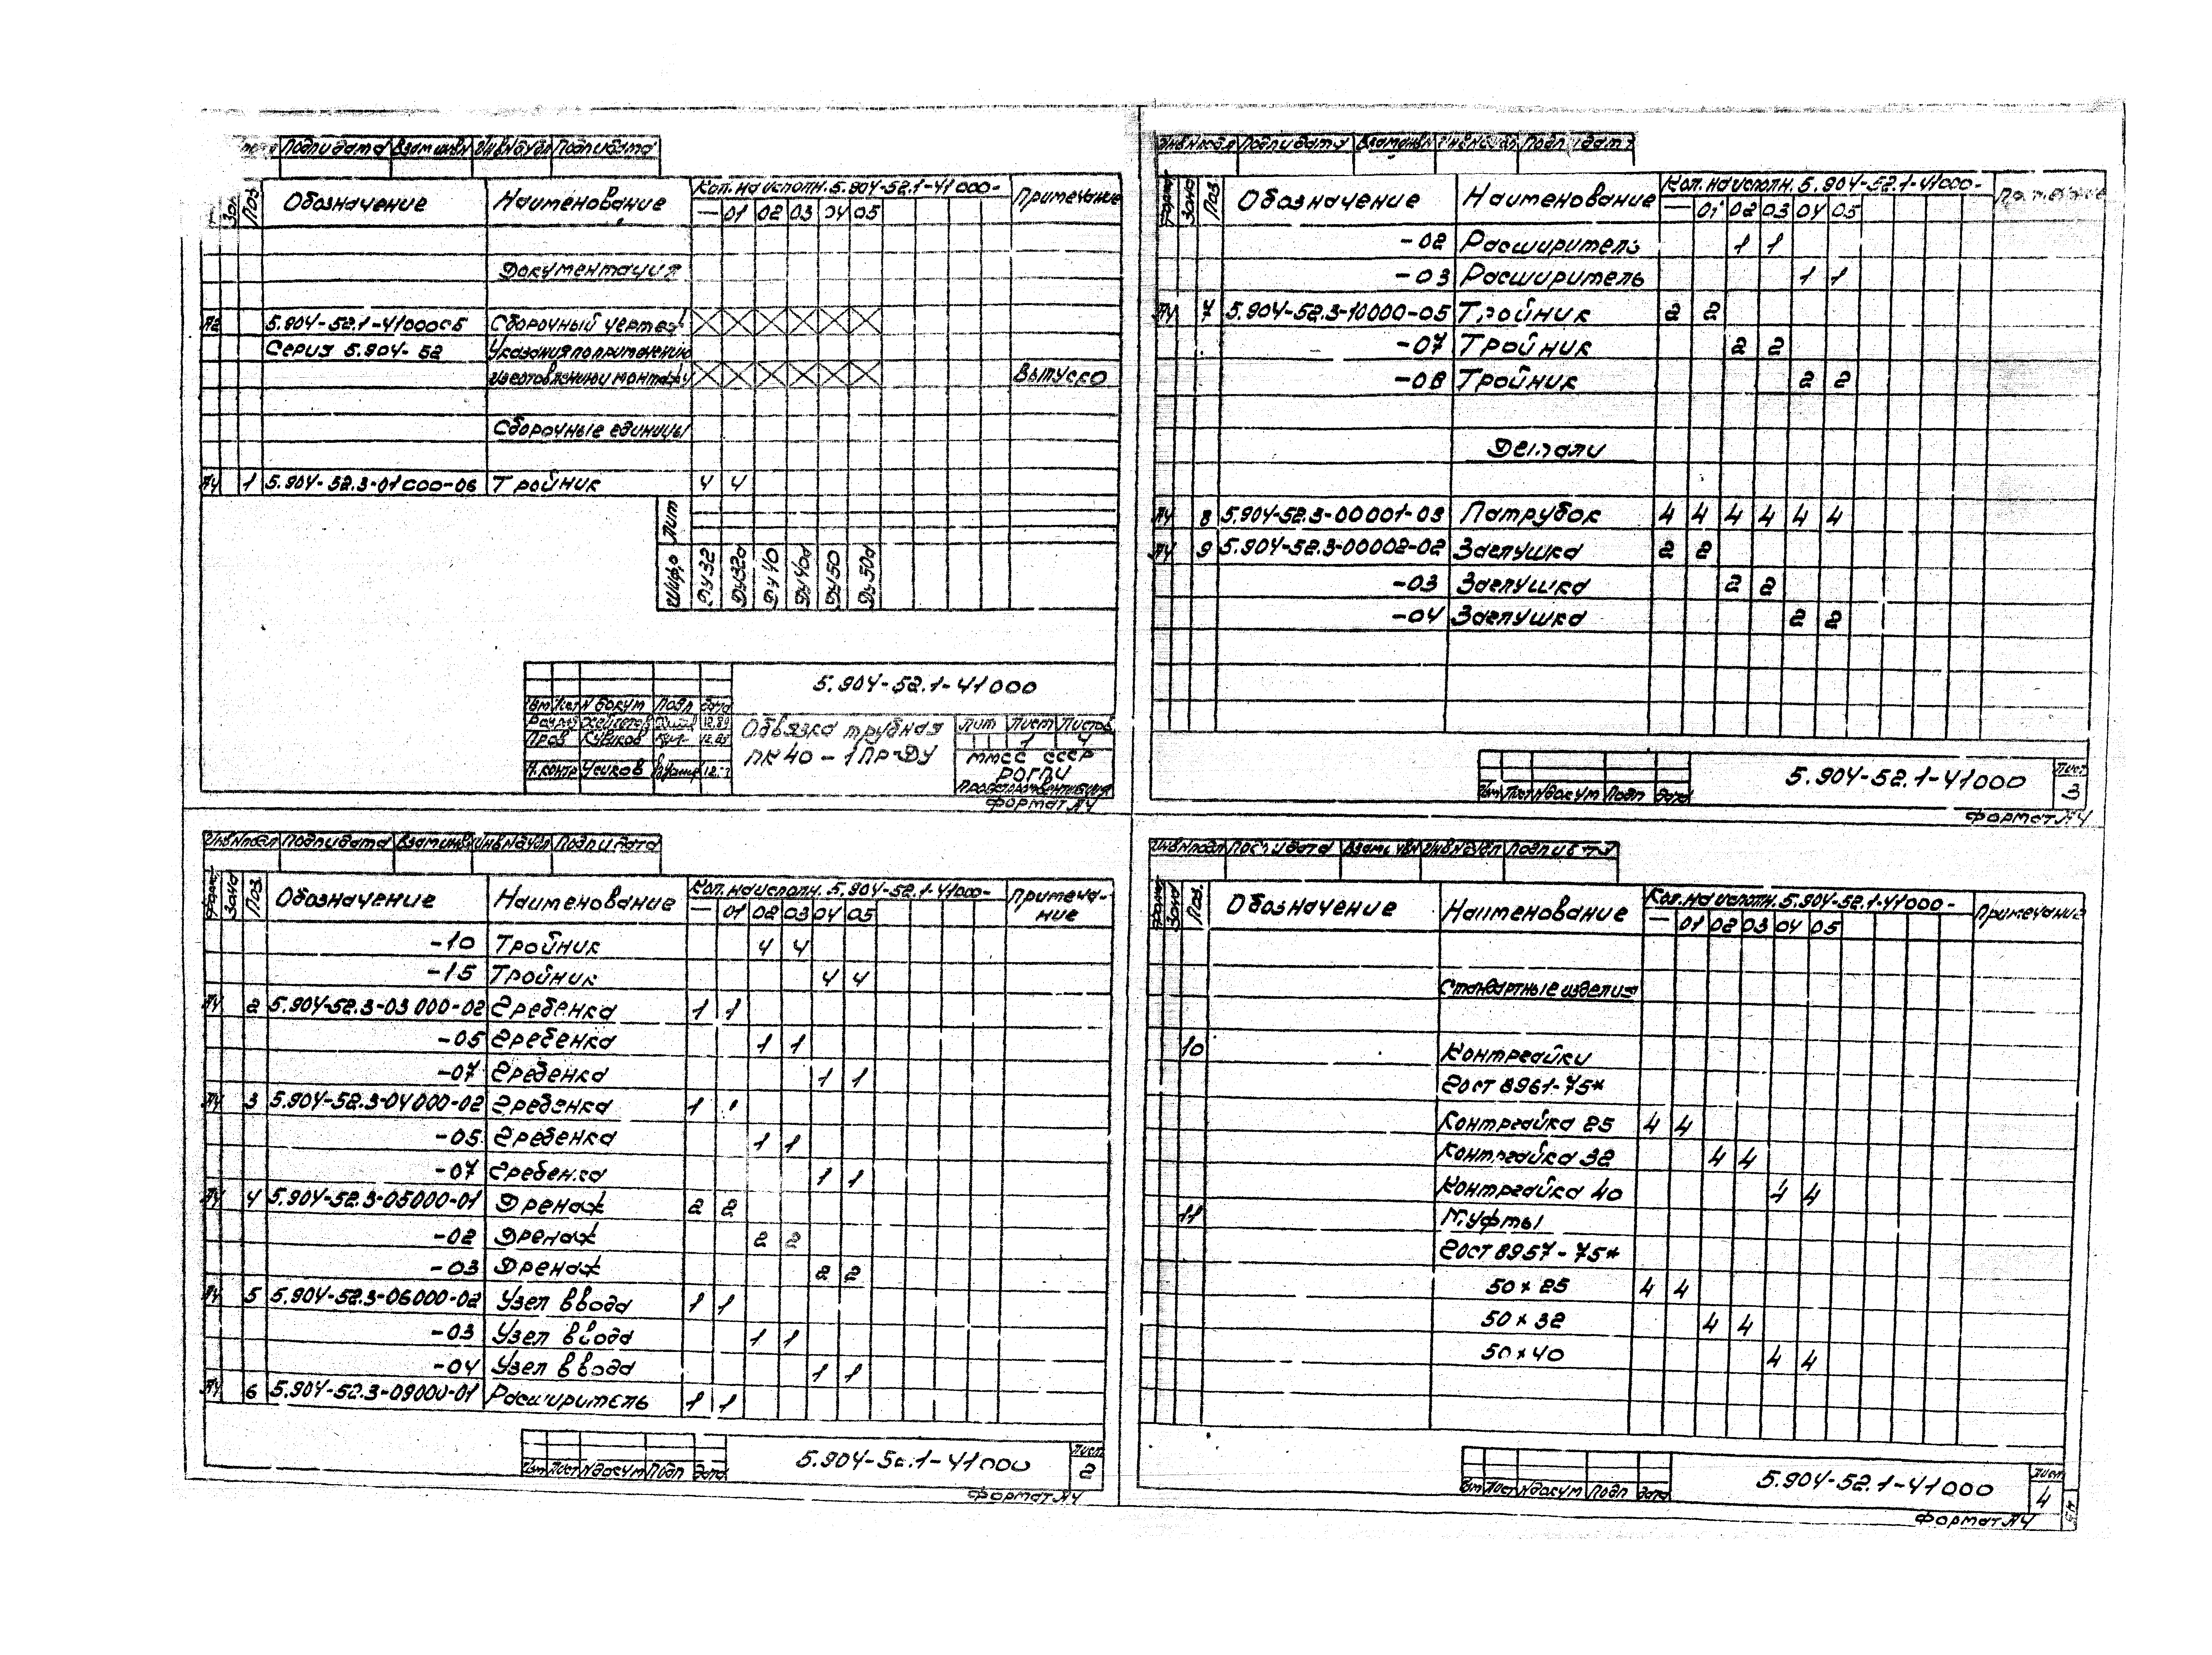 Подп и дата Взам инв Инв № дубл Подп и дата
Зон Поз Обозначение Наименование Кол. на исполн. 5.904-52.1-41000- Примечание
— 01 02 03 04 05
Документация
А2 5.904-52.1-41000СБ Сборочный чертеж
Серия 5.904-52 Указания по применению
изготовлению и монтажу Выпуск 0
Сборочные единицы
А4 1 5.904-52.3-01000-06 Тройник 4 4
Лит
Шифр Ду32 Ду32а Ду40 Ду40а Ду50 Ду50а
5.904-52.1-41000
Изм Лист № докум Подп Дата
Разраб 12.89
Пров Куликов 12.89
Н.контр Усиков
Обвязка трубная
ПК40-1Пр-Ду
Лит Лист Листов
1 4
ММСС СССР
РОГПИ
Формат А4
Инв № подл Подп и дата Взам инв Инв № дубл Подп и дата
Форм Зона Поз. Обозначение Наименование Кол. на исполн. 5.904-52.1-41000- Примеча-
ние
— 01 02 03 04 05
-10 Тройник 4 4
-15 Тройник 4 4
А4 2 5.904-52.3-03000-02 Гребенка 1 1
-05 Гребенка 1 1
-07 Гребенка 1 1
А4 3 5.904-52.3-04000-02 Гребенка 1 1
-05 Гребенка 1 1
-07 Гребенка 1 1
А4 4 5.904-52.3-05000-01 Дренаж 2 2
-02 Дренаж 2 2
-03 Дренаж 2 2
А4 5 5.904-52.3-06000-02 Узел ввода 1 1
-03 Узел ввода 1 1
-04 Узел ввода 1 1
А4 6 5.904-52.3-09000-01 Расширитель 1 1
Изм Лист № докум Подп Дата
5.904-52.1-41000
Лист
2
Формат А4
Инв № подл Подп и дата Взам инв Инв № дубл Подп и дата
Форм Зона Поз Обозначение Наименование Кол. на исполн. 5.904-52.1-41000- Примечание
— 01 02 03 04 05
-02 Расширитель 1 1
-03 Расширитель 1 1
А4 7 5.904-52.3-10000-05 Тройник 2 2
-07 Тройник 2 2
-08 Тройник 2 2
Детали
А4 8 5.904-52.3-00001-03 Патрубок 4 4 4 4 4 4
А4 9 5.904-52.3-00002-02 Заглушка 2 2
-03 Заглушка 2 2
-04 Заглушка 2 2
Изм Лист № докум Подп Дата
5.904-52.1-41000
Лист
3
Формат А4
Инв № подл Подп и дата Взам инв Инв № дубл Подп и дата
Форм Зона Поз. Обозначение Наименование Кол. на исполн. 5.904-52.1-41000- Примечание
— 01 02 03 04 05
Стандартные изделия
10 Контргайки
ГОСТ 8961-75*
Контргайка 25 4 4
Контргайка 32 4 4
Контргайка 40 4 4
11 Муфты
ГОСТ 8957-75*
50×25 4 4
50×32 4 4
50×40 4 4
Изм Лист № докум Подп Дата
5.904-52.1-41000
Лист
4
Формат А4